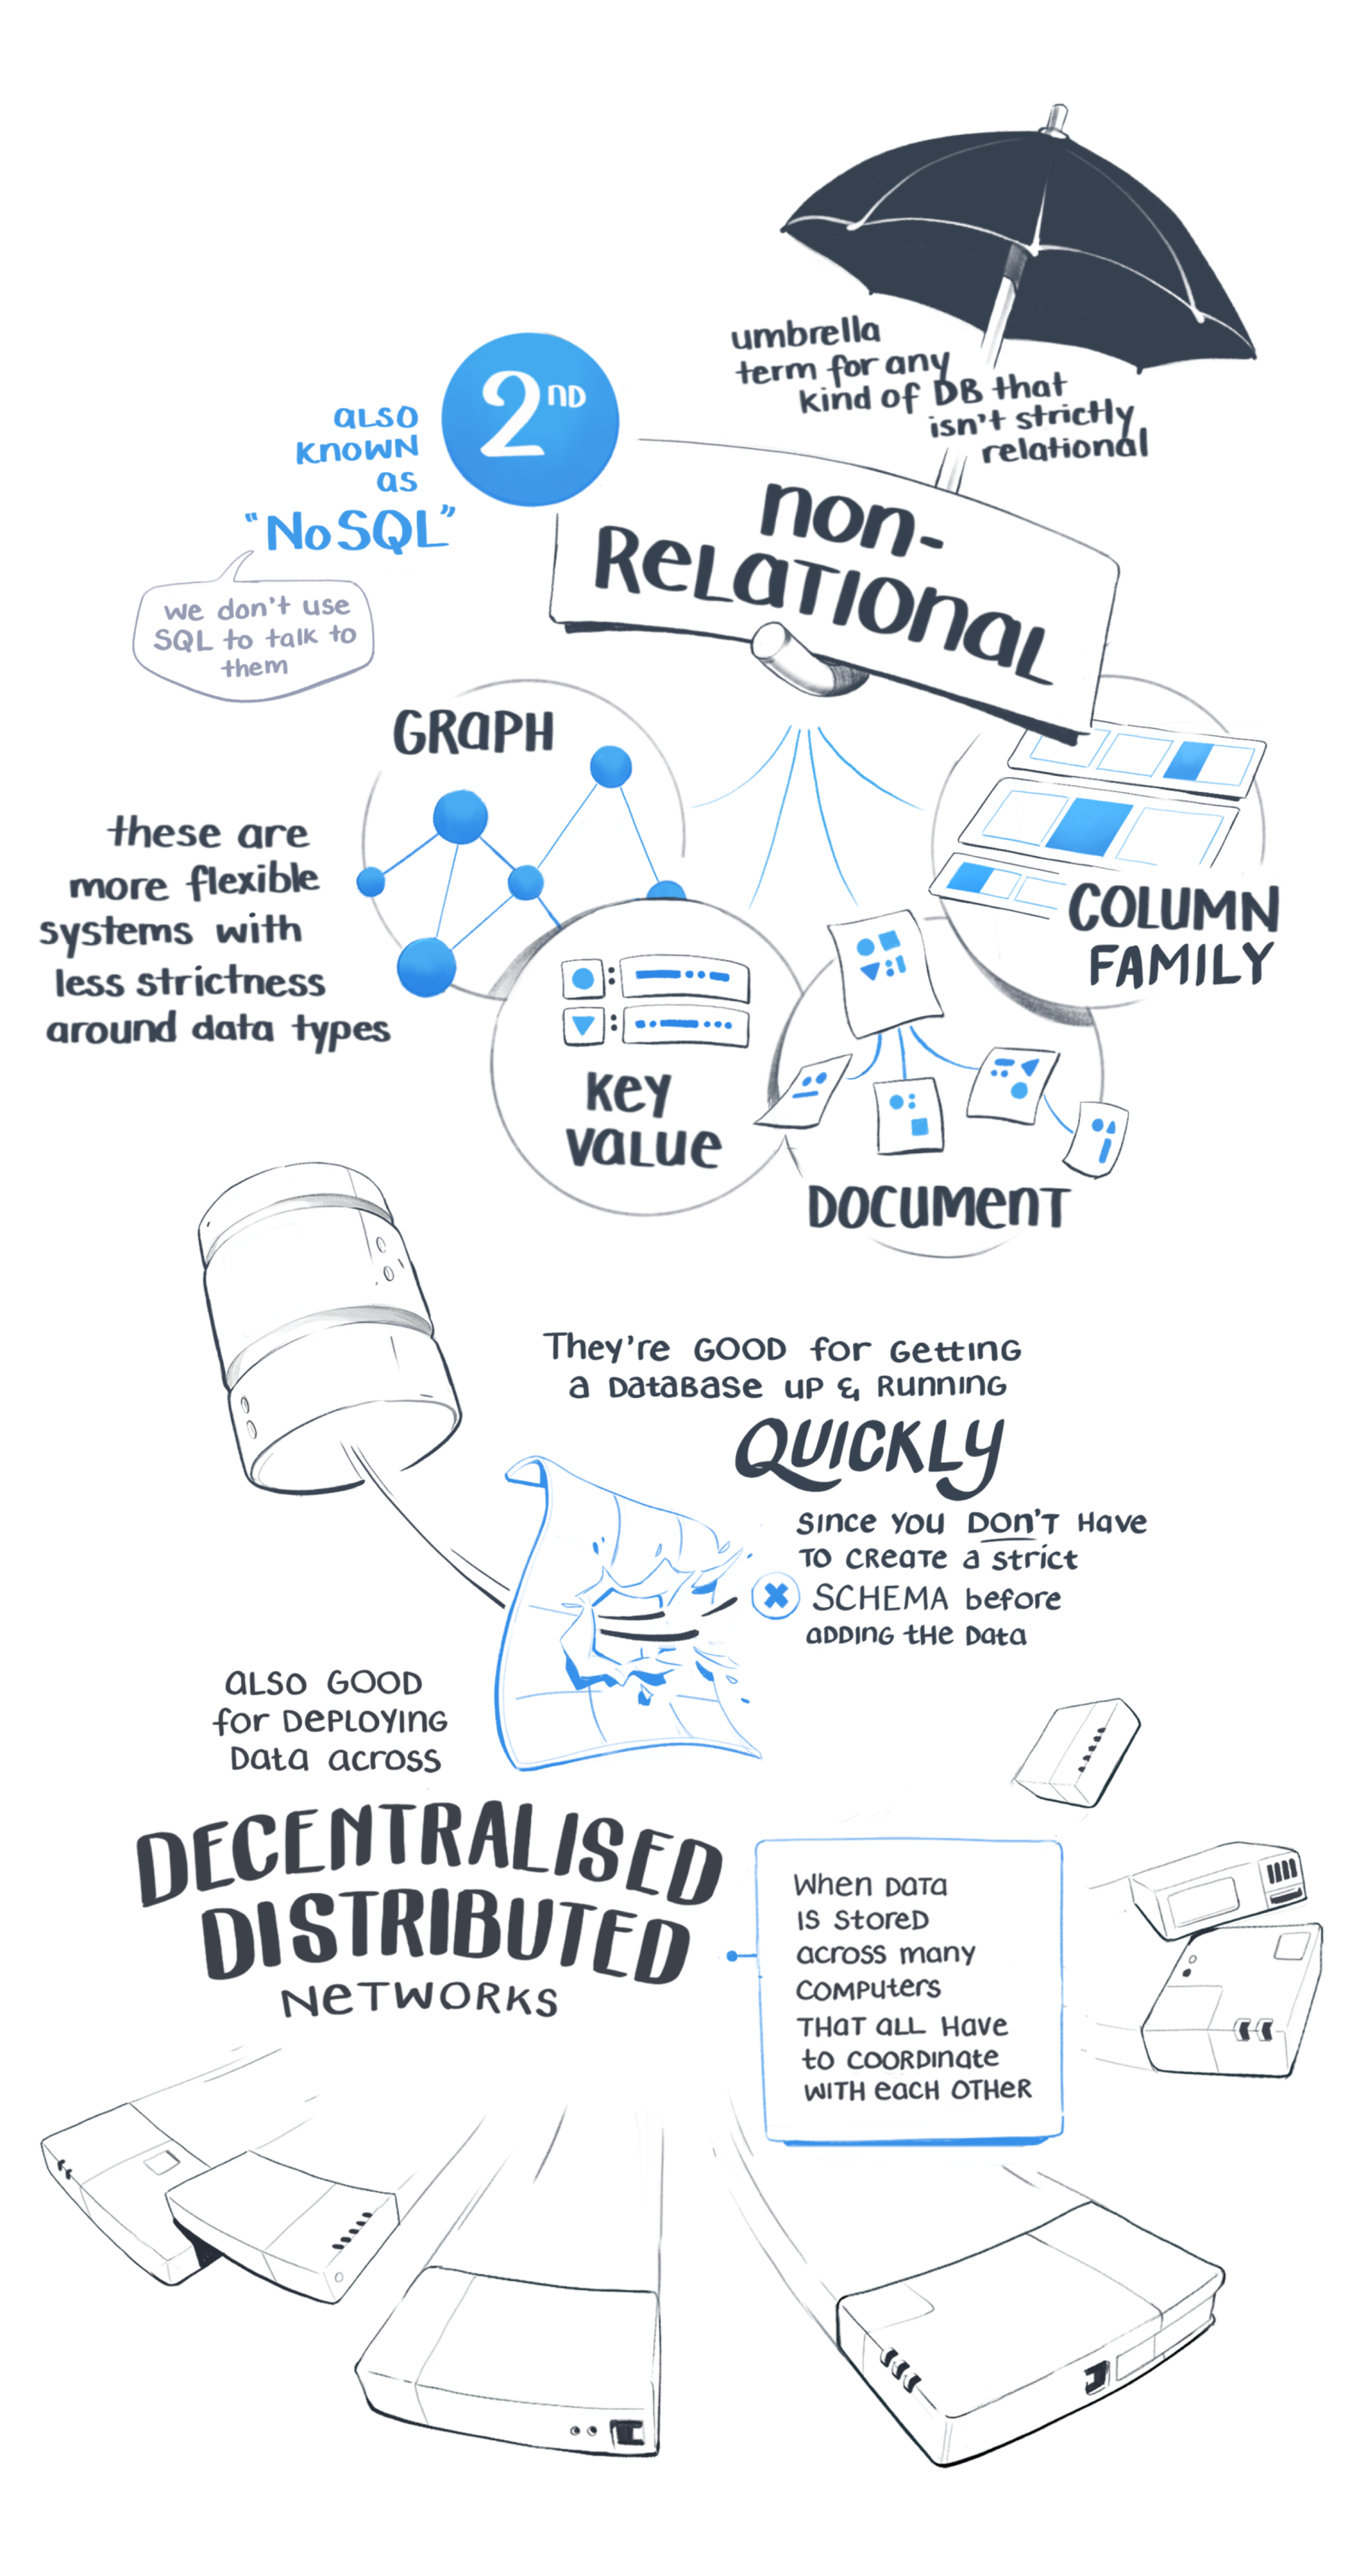 umbrella
term for any
kind of DB that
isn't strictly
relational
2ND
also
known
as
"NoSQL"
we don't use
SQL to talk to
them
non-
Relational
GRAPH
these are
more flexible
systems with
less strictness
around data types
COLUMN
FAMILY
Key
Value
DOCUMENT
They're GOOD for Getting
a Database up & Running
QUICKLY
since you DON'T Have
TO CReaTe a strict
SCHEMA before
aDDING tHe Data
aLso GOOD
for DePLOYING
Data across
DECENTRALISED
DISTRIBUTED
NeTWORKS
When Data
is stored
across many
computers
THaT aLL Have
to COORDinate
WITH eacH OTHeR